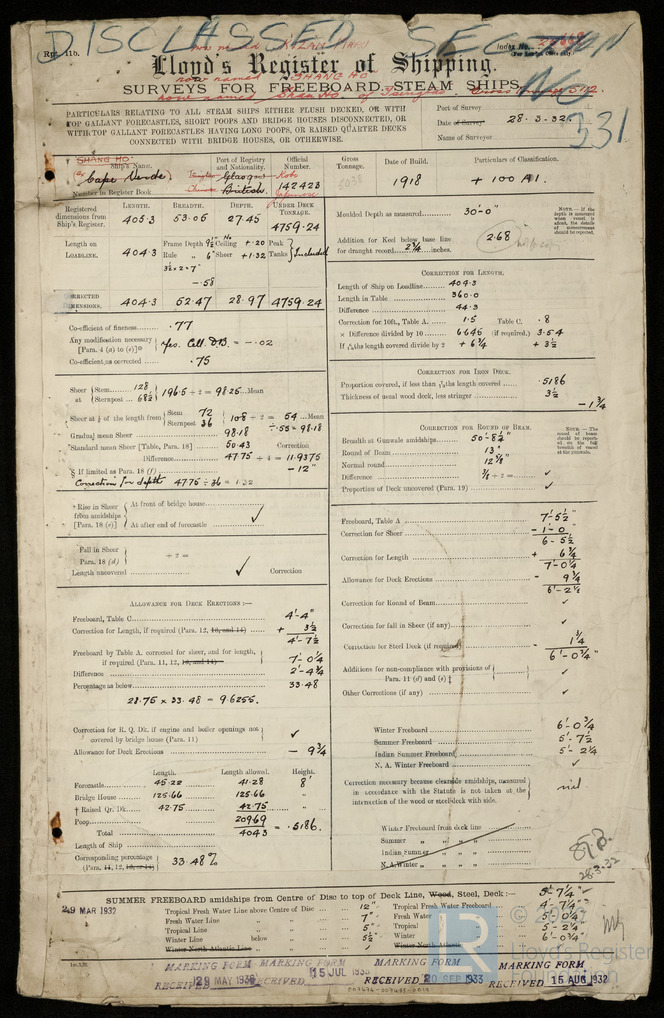 DISCLASSED SECTION
No 331
Rpt. 11b.
now named
Index No.
(For London Office only).
Lloyd's Register of Shipping.
now named SHANG HO
SURVEYS FOR FREEBOARD, STEAM SHIPS.
PARTICULARS RELATING TO ALL STEAM SHIPS EITHER FLUSH DECKED, OR WITH
TOP GALLANT FORECASTLES, SHORT POOPS AND BRIDGE HOUSES DISCONNECTED, OR
WITH TOP GALLANT FORECASTLES HAVING LONG POOPS, OR RAISED QUARTER DECKS
CONNECTED WITH BRIDGE HOUSES, OR OTHERWISE.
Port of Survey
Date of Survey 28.3.32.
Name of Surveyor
SHANG HO
Ship's Name.
Cape Verde
Number in Register Book
Port of Registry and Nationality.
Glasgow
British
Official Number.
Kobe
142423
Japanese
Gross Tonnage.
5038
Date of Build.
1918
Particulars of Classification.
+ 100 A1.
Registered dimensions from Ship's Register.
LENGTH. BREADTH. DEPTH. UNDER DECK TONNAGE.
405.3 53.05 27.45 4759.24
Length on LOADLINE. 404.3
Frame Depth 9½" No Ceiling + .20 Peak
Rule „ 6" Sheer + 1.32 Tanks } Included
3½ × 2 = 7"
- .58
CORRECTED DIMENSIONS. 404.3 52.47 28.97 4759.24
Co-efficient of fineness .77
Any modification necessary [Para. 4 (a) to (e)] Yes. Cell. D.B. = - .02
Co-efficient as corrected .75
Sheer at { Stem 128
Sternpost 68½ } 196.5 ÷ 2 = 98.25 Mean
Sheer at ⅛ of the length from { Stem 72
Sternpost 36 } 108 ÷ 2 = 54 Mean
÷ .55 = 98.18
Gradual mean Sheer 98.18
Standard mean Sheer [Table, Para. 18] 50.43 Correction
Difference 47.75 ÷ 4 = 11.9375
§ If limited as Para. 18 (f) - 12"
Correction for depth 47.75 ÷ 36 = 1.32
Rise in Sheer from amidships [Para. 18 (e)]
At front of bridge house
At after end of forecastle ✓
Fall in Sheer Para. 18 (d) ÷ 2 =
Length uncovered ✓ Correction
ALLOWANCE FOR DECK ERECTIONS :—
Freeboard, Table C 4'-4"
Correction for Length, if required (Para. 12, 13, and 14) + 3½
4'-7½
Freeboard by Table A. corrected for sheer, and for length, if required (Para. 11, 12, 13, and 14) 7'-0¼
Difference 2'-4¾
Percentage as below 33.48
28.75 × 33.48 = 9.6255.
Correction for R. Q. Dk. if engine and boiler openings not covered by bridge house (Para. 11) ✓
Allowance for Deck Erections - 9¾
Length. Length allowed. Height.
Forecastle 45.22 41.28 8'
Bridge House 125.66 125.66 „
† Raised Qr. Dk. 42.75 42.75 „
Poop
Total 209.69
404.3 = .5186.
Length of Ship
Corresponding percentage (Para. 11, 12, 13, or 14) 33.48%
Moulded Depth as measured 30'-0"
NOTE.—If the depth is measured when vessel is afloat, the details of measurement should be reported.
Addition for Keel below base line for draught record 2¾ inches.
2.68
CORRECTION FOR LENGTH.
Length of Ship on Loadline 404.3
Length in Table 360.0
Difference 44.3
Correction for 10ft., Table A. 1.5 Table C. .8
× Difference divided by 10 6.645 (if required.) 3.54
If 6/10ths length covered divide by 2 + 6¾ + 3½
CORRECTION FOR IRON DECK.
Proportion covered, if less than 7/10ths length covered .5186
Thickness of usual wood deck, less stringer 3½
- 1¾
CORRECTION FOR ROUND OF BEAM.
Breadth at Gunwale amidships 50'-8¼"
Round of Beam 13"
Normal round 12⅝"
Difference ⅜ ÷ 2 = ✓
Proportion of Deck uncovered (Para. 19) ✓
NOTE.—The round of beam should be reported on the full breadth of vessel at the gunwale.
Freeboard, Table A 7'-5½"
Correction for Sheer - 1-0
6-5½
Correction for Length + 6¾
7'-0¼
Allowance for Deck Erections - 9¾
6'-2½
Correction for Round of Beam ✓
Correction for fall in Sheer (if any) ✓
Correction for Steel Deck (if required) - 1¾
6'-0¾"
Additions for non-compliance with provisions of Para. 11 (d) and (e) ‡ ✓
Other Corrections (if any) ✓
Winter Freeboard 6'-0¾
Summer Freeboard 5'-7½
Indian Summer Freeboard 5'-2¼
N. A. Winter Freeboard ✓
Correction necessary because clearside amidships, measured in accordance with the Statute is not taken at the intersection of the wood or steel deck with side. nil
Winter Freeboard from deck line
Summer „ „ „ „
Indian Summer „ „ „
N. A. Winter „ „ „
28.3.32
SUMMER FREEBOARD amidships from Centre of Disc to top of Deck Line, Wood, Steel, Deck :— 5'-7¼"
29 MAR 1932
Tropical Fresh Water Line above Centre of Disc 12" Tropical Fresh Water Freeboard 4'-7¼"
Fresh Water Line „ „ 7" Fresh Water „ 5'-0¼"
Tropical Line „ „ 5" Tropical „ 5'-2¼
Winter Line below „ 5½" Winter „ 6'-0¾"
Winter North Atlantic Line „ ✓ Winter North Atlantic „
© Lloyd's Register Foundation
MARKING FORM MARKING FORM MARKING FORM
15 JUL 1933
RECEIVED 20 SEP 1933
RECEIVED 15 AUG 1932